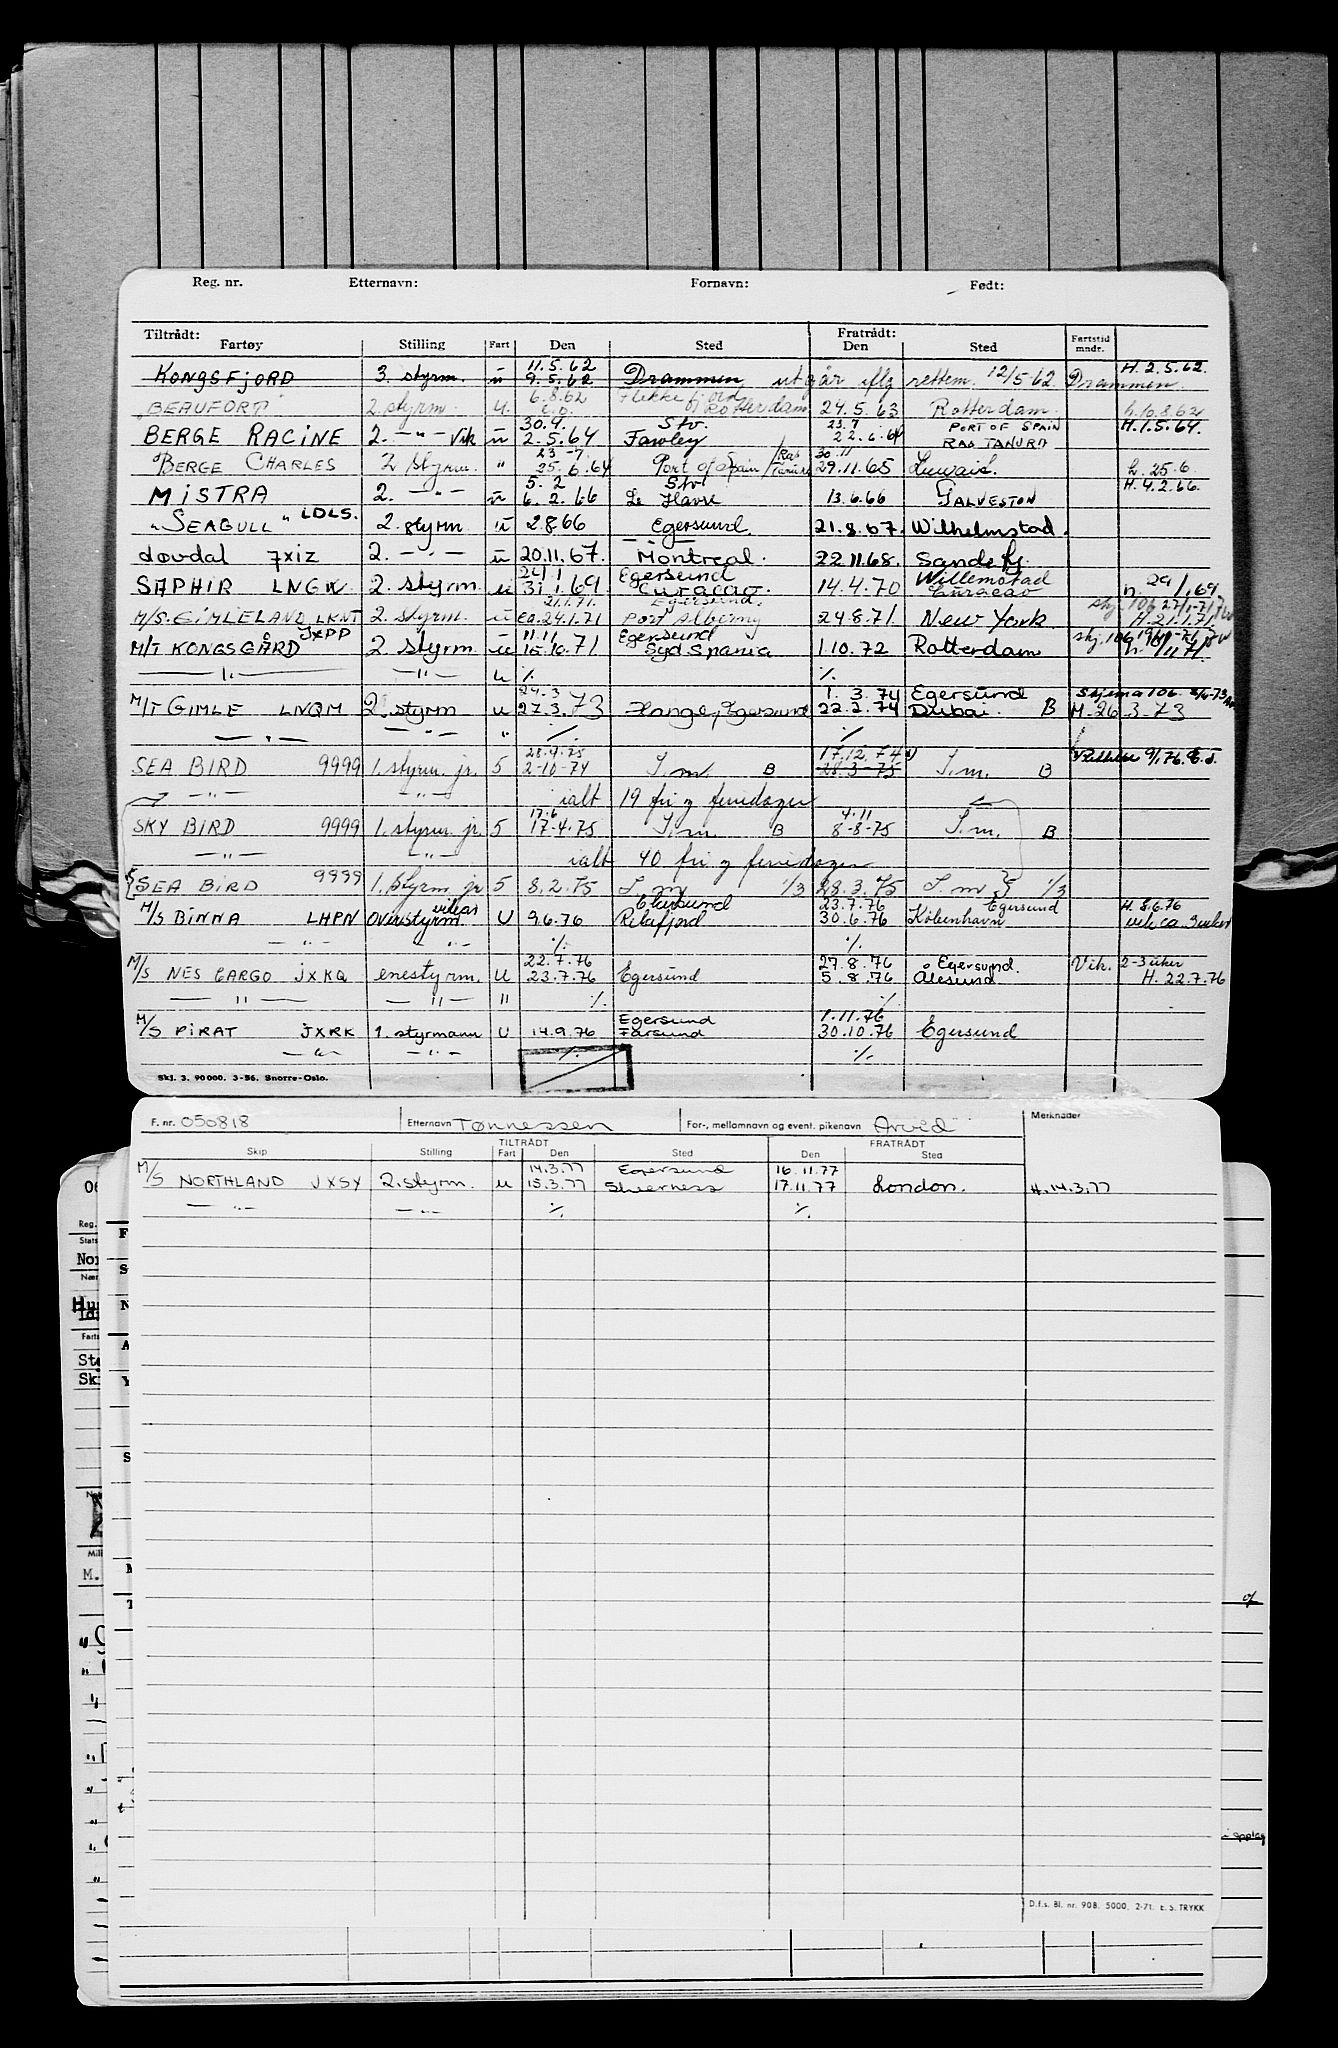 Reg. nr. Etternavn: Fornavn: Født:
Tiltrådt: Fratrådt:
Fartøy Stilling Fart Den Sted Den Sted Fartstid mndr.
11.5.62 H. 2.5.62.
KONGSFJORD 3. styrm. u 9.5.62 Drammen utgår iflg rettem. 12/5 62. Drammen.
6.8.62 Flekkefjord
"BEAUFORT" 2. styrm. u. Rotterdam 24.5.63 Rotterdam. h. 10.8.62
30.4. Stv. 23.7 PORT OF SPAIN H. 1.5.64.
BERGE RACINE 2. -"- Vik u 2.5.64 Fawley 22.6.64 RAS TANURA
23-7 Ras 30.11
BERGE CHARLES 2 styrm. " 25.6.64 Port of Spain / Tanura 29.11.65 h. 25.6.
5.2 Stv H. 4.2.66.
MISTRA 2. -"- u 6.2.66 Le Havre 13.6.66 GALVESTON
"SEAGULL" LDLS. 2. styrm u 2.8 66 Egersund. 21.8.67. Wilhelmstad.
Løvdal JXIZ 2. -"- u 20.11.67. Montreal. 22.11.68. Sandefj.
24.1 Egersund Willemstad 29
SAPHIR LNGW. 2. styrm. u 31.1.69 Curacao. 14.4.70 Curacao h. /1.69
21.1.71. Egersund. skj. 106 27/1-71
M/S. GIMLELAND LKNT 2. styrm. u ca. 24.1.71 Port Alberny 24.8.71 New York H. 21.1.71.
JXPP 11.11 Egersund skj. 106 19/11-71
M/T KONGSGÅRD 2 styrm u 15.10.71 Syd Spania 1.10.72 Rotterdam h. /11 71.
-"- -"- u % %
24.3 1.3.74 Egersund Skjema 106.
M/T GIMLE LNQM 2. styrm u 27.3.73 Hauge, Egersund 22.2.74 Dubai. B H. 26.3-73
-"- " % %
28.9.75 17.12.74
SEA BIRD 9999 1. styrm. jr. 5 2-10-74 I.m. B 28.3-75 I.m. B Rettelse 9/1.76.
-"- -"- ialt 19 fri og feriedager
17.6 4.11
SKY BIRD 9999 1. styrm. jr. 5 17-4.75 I.m. B 8-8-75 I.m. B
-"- -"- ialt 40 fri og feriedager
SEA BIRD 9999 1. styrm jr 5 8.2.75 I.m 1/3 28.3.75 I.m 1/3
vikar 23.7.76 Egersund H. 8.6.76
M/S BINNA LHPN Overstyrm. U 9.6.76 30.6.76 København vik ca. 3 uker
-"- % %
22.7.76 27.8.76 Egersund. Vik. 2-3 uker
M/S NES CARGO JXKQ enestyrm. U 23.7.76 Egersund 5.8.76 Ålesund H. 22.7.76
-"- -"- " % %
Egersund 1.11.76
M/S PIRAT JXRK 1. styrmann U 14.9.76 Farsund 30.10.76 Egersund
-"- -"- % %
Skj. 3. 90000. 3-56. Snorre-Oslo.
F. nr. 050818 Etternavn Tønnessen For-, mellomnavn og event. pikenavn Arvid Merknader
TILTRÅDT FRATRÅDT
Skip Stilling Fart Den Sted Den Sted
14.3.77 Egersund 16.11.77
M/S NORTHLAND JXSY 2. styrm. u 15.3.77 Sheerness 17.11.77 London. H. 14.3.77
-"- -"- % %
D.f.s. Bl. nr. 908. 5000. 2-71. E. S. TRYKK